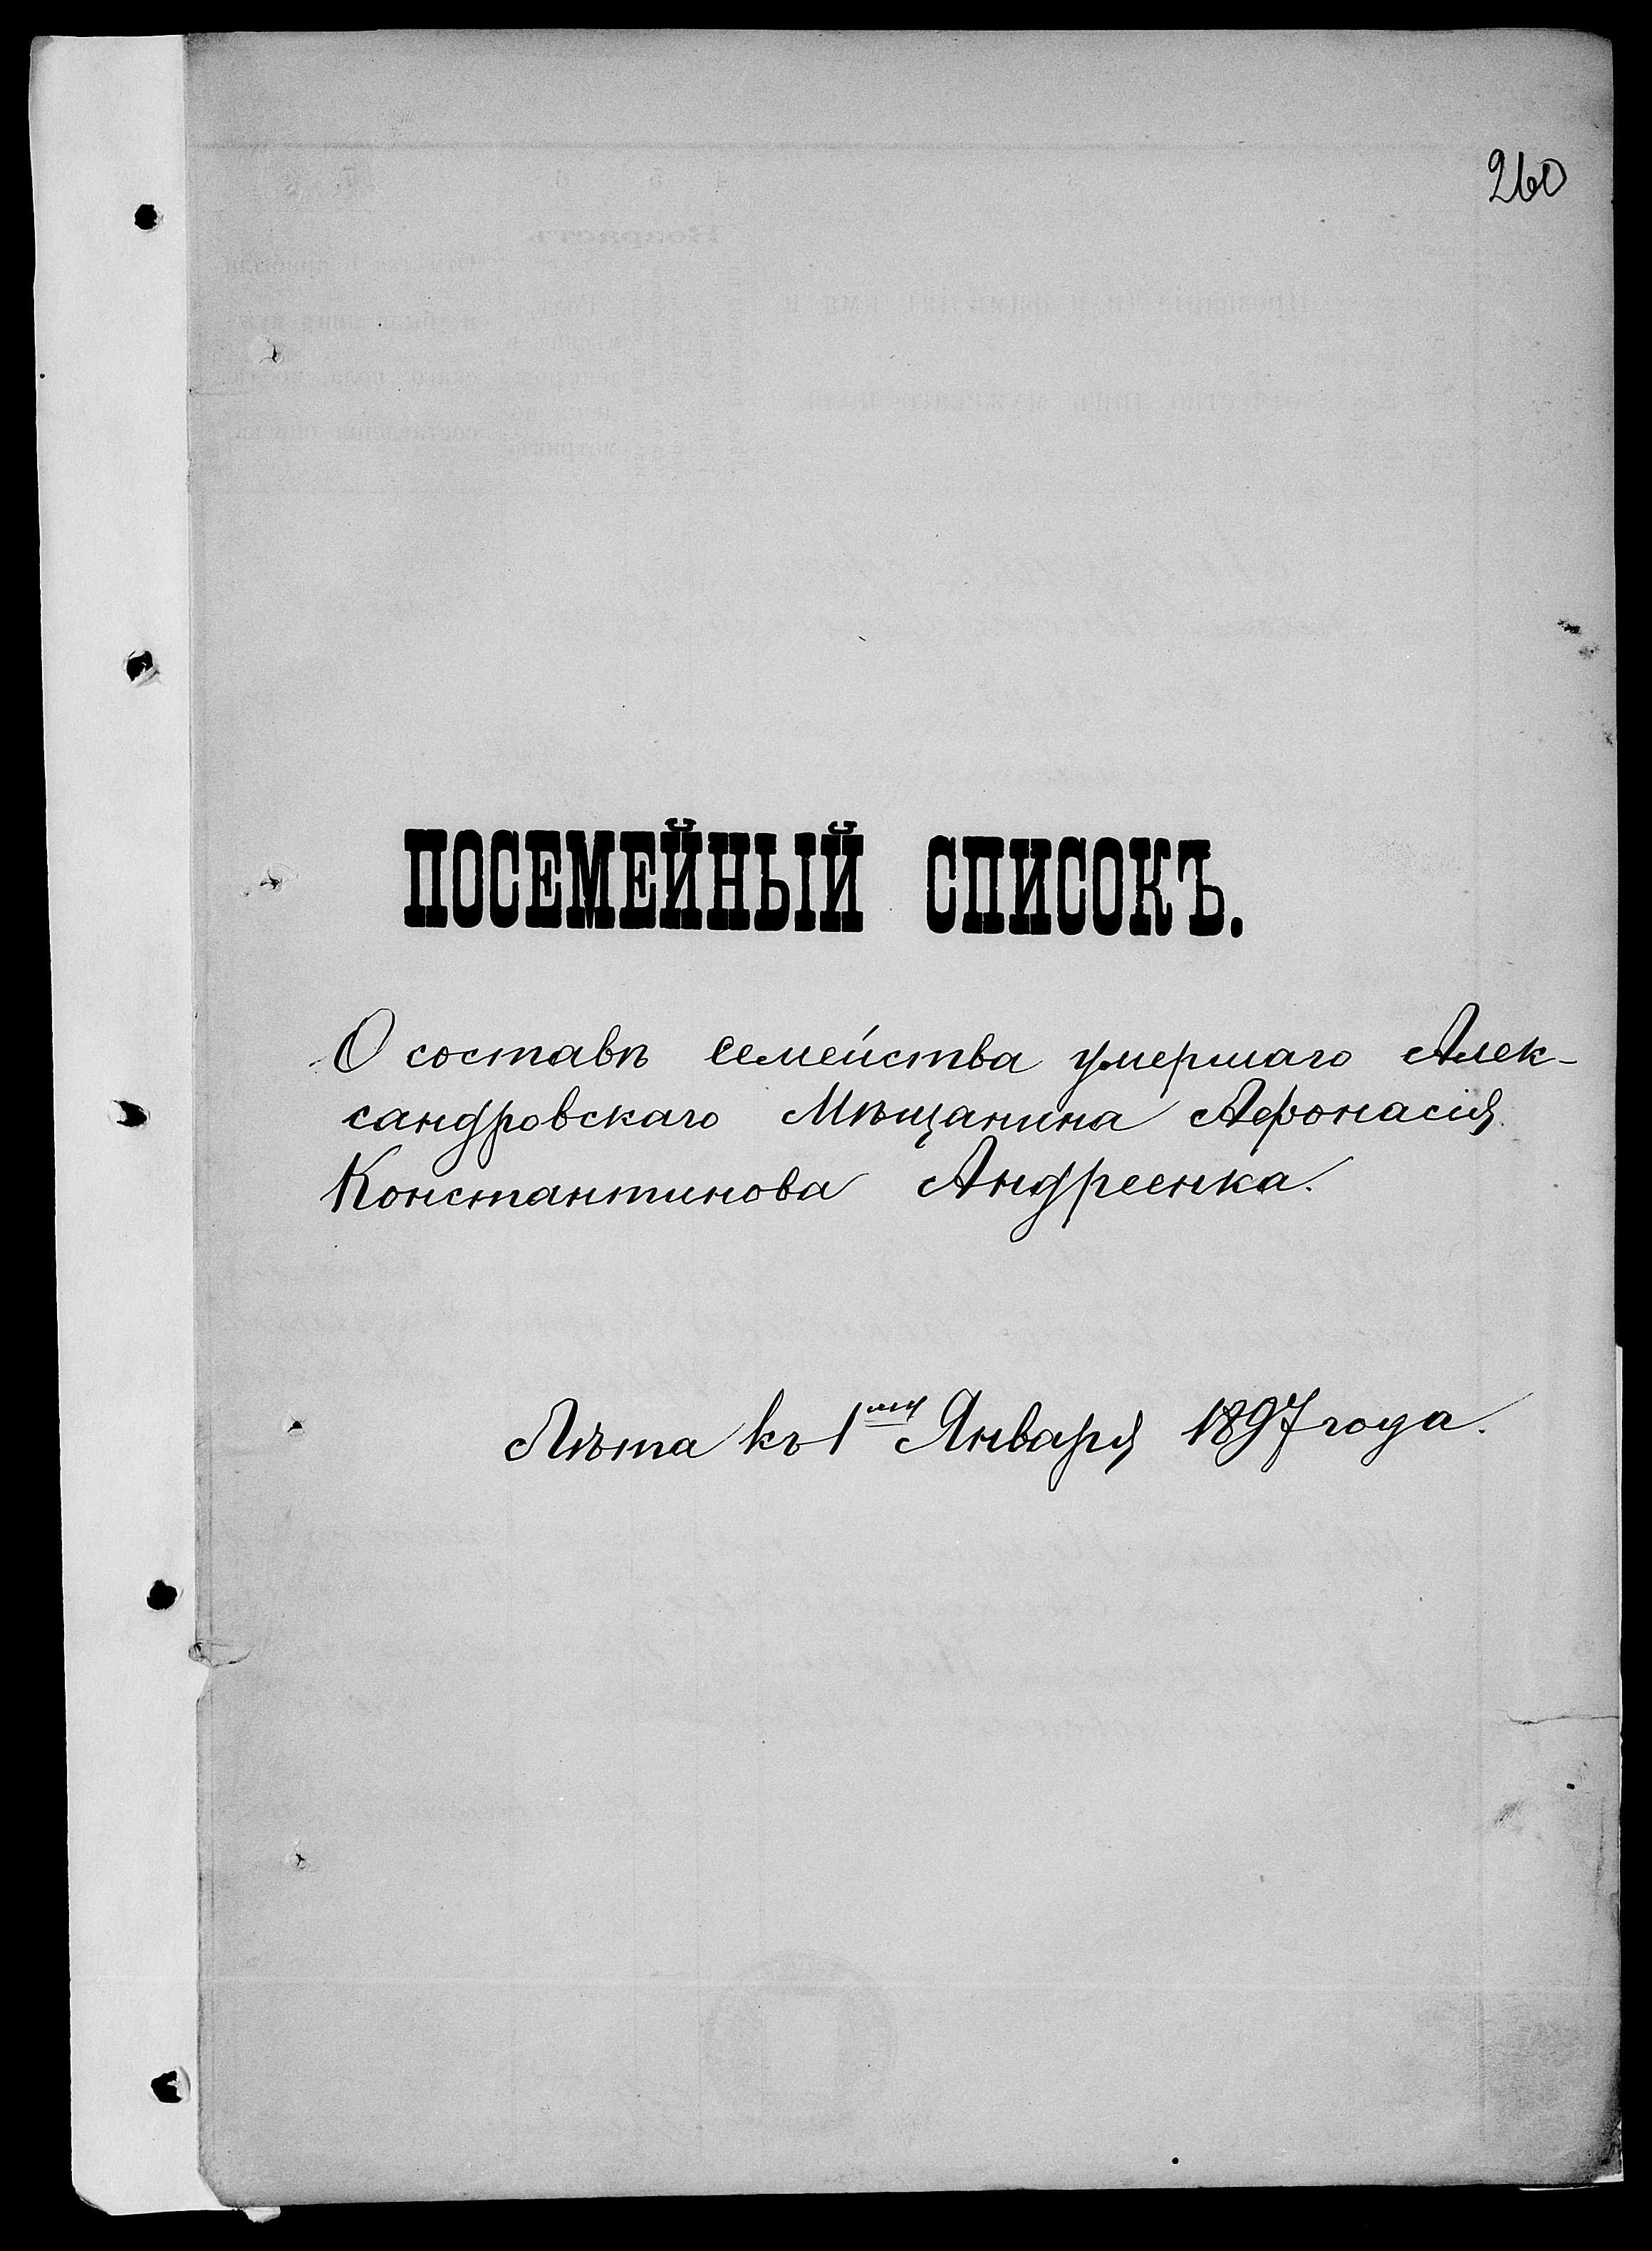 260
ПОСЕМЕЙНЫЙ СПИСОКЪ.
О составѣ семейства умершаго Алек-
сандровскаго Мѣщанина Афонасія
Константинова Андреенка.
Лѣта къ 1му Января 1897 года.